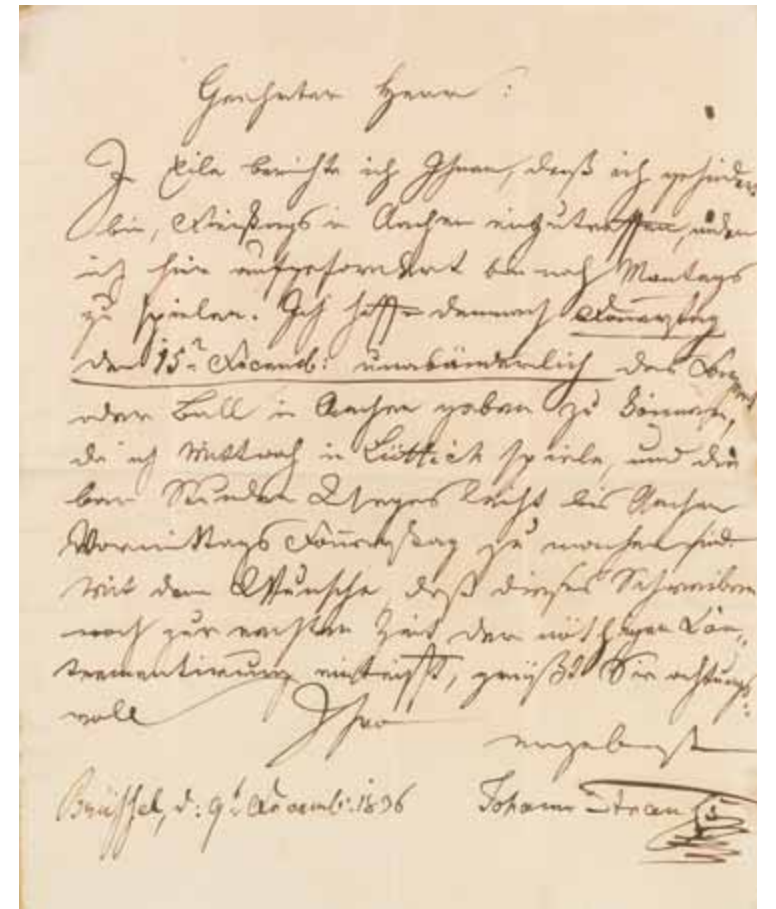 Geehrter Herr:
In Eile berichte ich Ihnen, daß ich gehindert
bin, Dienstags in Aachen einzutreffen, indem
ich hier aufgefordert bin noch Montags
zu spielen. Ich hoffe demnach Donnerstag
den 15t Decemb: unabänderlich das
oder Ball in Aachen geben zu können,
da ich Mittwoch in Lüttich spiele, und die
Stunden Weges leicht bis Aachen
Vormittags Donnerstag zu machen sind.
Mit dem Wunsche, daß dieses Schreiben
noch zur rechten Zeit der nöthigen
eintrifft, grüßt Sie achtungs-
voll Ihro
ergebenst
Brüssel, d: 9t Decemb: 1836 Johann Strauß